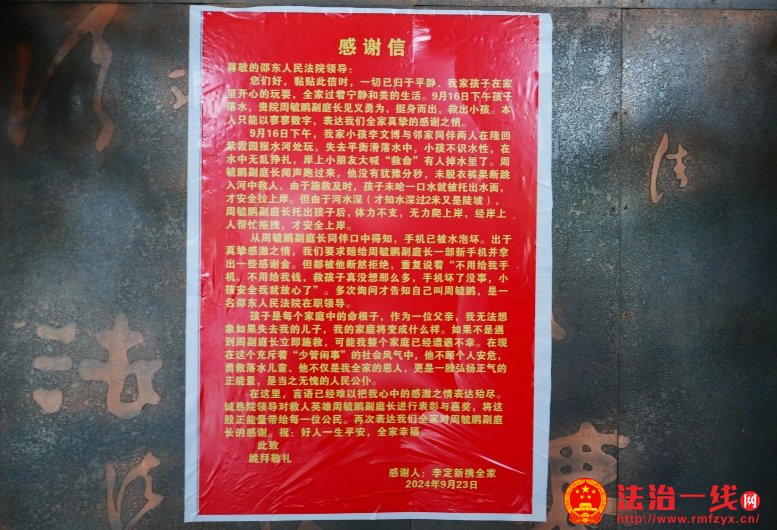 感谢信
尊敬的邵东人民法院领导：
您们好，黏贴此信时，一切已归于平静、我家孩子在家
里开心的玩耍，全家过着宁静和美的生活。9月16日下午孩子
落水，贵院周毓鹏副庭长见义勇为，挺身而出，救出小孩。本
人只能以寥寥数字，表达我们全家真挚的感谢之情。
9月16日下午，我家小孩李文博与邻家同伴两人在隆回
紫霞园报水河处玩，失去平衡滑落水中，小孩不识水性，在
水中无乱挣扎，岸上小朋友大喊“救命”有人掉水里了。周
毓鹏副庭长闻声跑过来，他没有犹豫分秒，未脱衣裤果断跳
入河中救人，由于施救及时，孩子未呛一口水就被托出水面，
才安全拉上岸。但由于河水深（才知水深过2米又是陡坡），
周毓鹏副庭长托出孩子后，体力不支，无力爬上岸，经岸上
人帮忙拖拽，才安全上岸。
从周毓鹏副庭长同伴口中得知，手机已被水泡坏。出于
真挚感激之情，我们要求赔给周毓鹏副庭长一部新手机并拿
出一些感谢金。但都被他断然拒绝，重复说着“不用给我手
机，不用给我钱，救孩子真没想那么多，手机坏了没事，小
孩安全我就放心了”。多次询问才告知自己叫周毓鹏，是一
名邵东人民法院在职领导。
孩子是每个家庭中的命根子，作为一位父亲，我无法想
象如果失去我的儿子，我的家庭将变成什么样。如果不是遇
到周副庭长立即施救，可能我整个家庭已经遭遇不幸。在现
在这个充斥着“少管闲事”的社会风气中，他不顾个人安危，
勇救落水儿童、他不仅是我全家的恩人，更是一股弘扬正气的
正能量，是当之无愧的人民公仆。
在这里，言语已经难以把我心中的感激之情表达殆尽。
诚恳院领导对救人英雄周毓鹏副庭长进行表彰与嘉奖，将这
股正能量带给每一位公民。再次表达我们全家对周毓鹏副庭
长的感谢。祝：好人一生平安，全家幸福。
此致
跪拜敬礼
感谢人：李定新携全家
2024年9月23日
法治一线网
http://www.rmfzyx.cn/
法